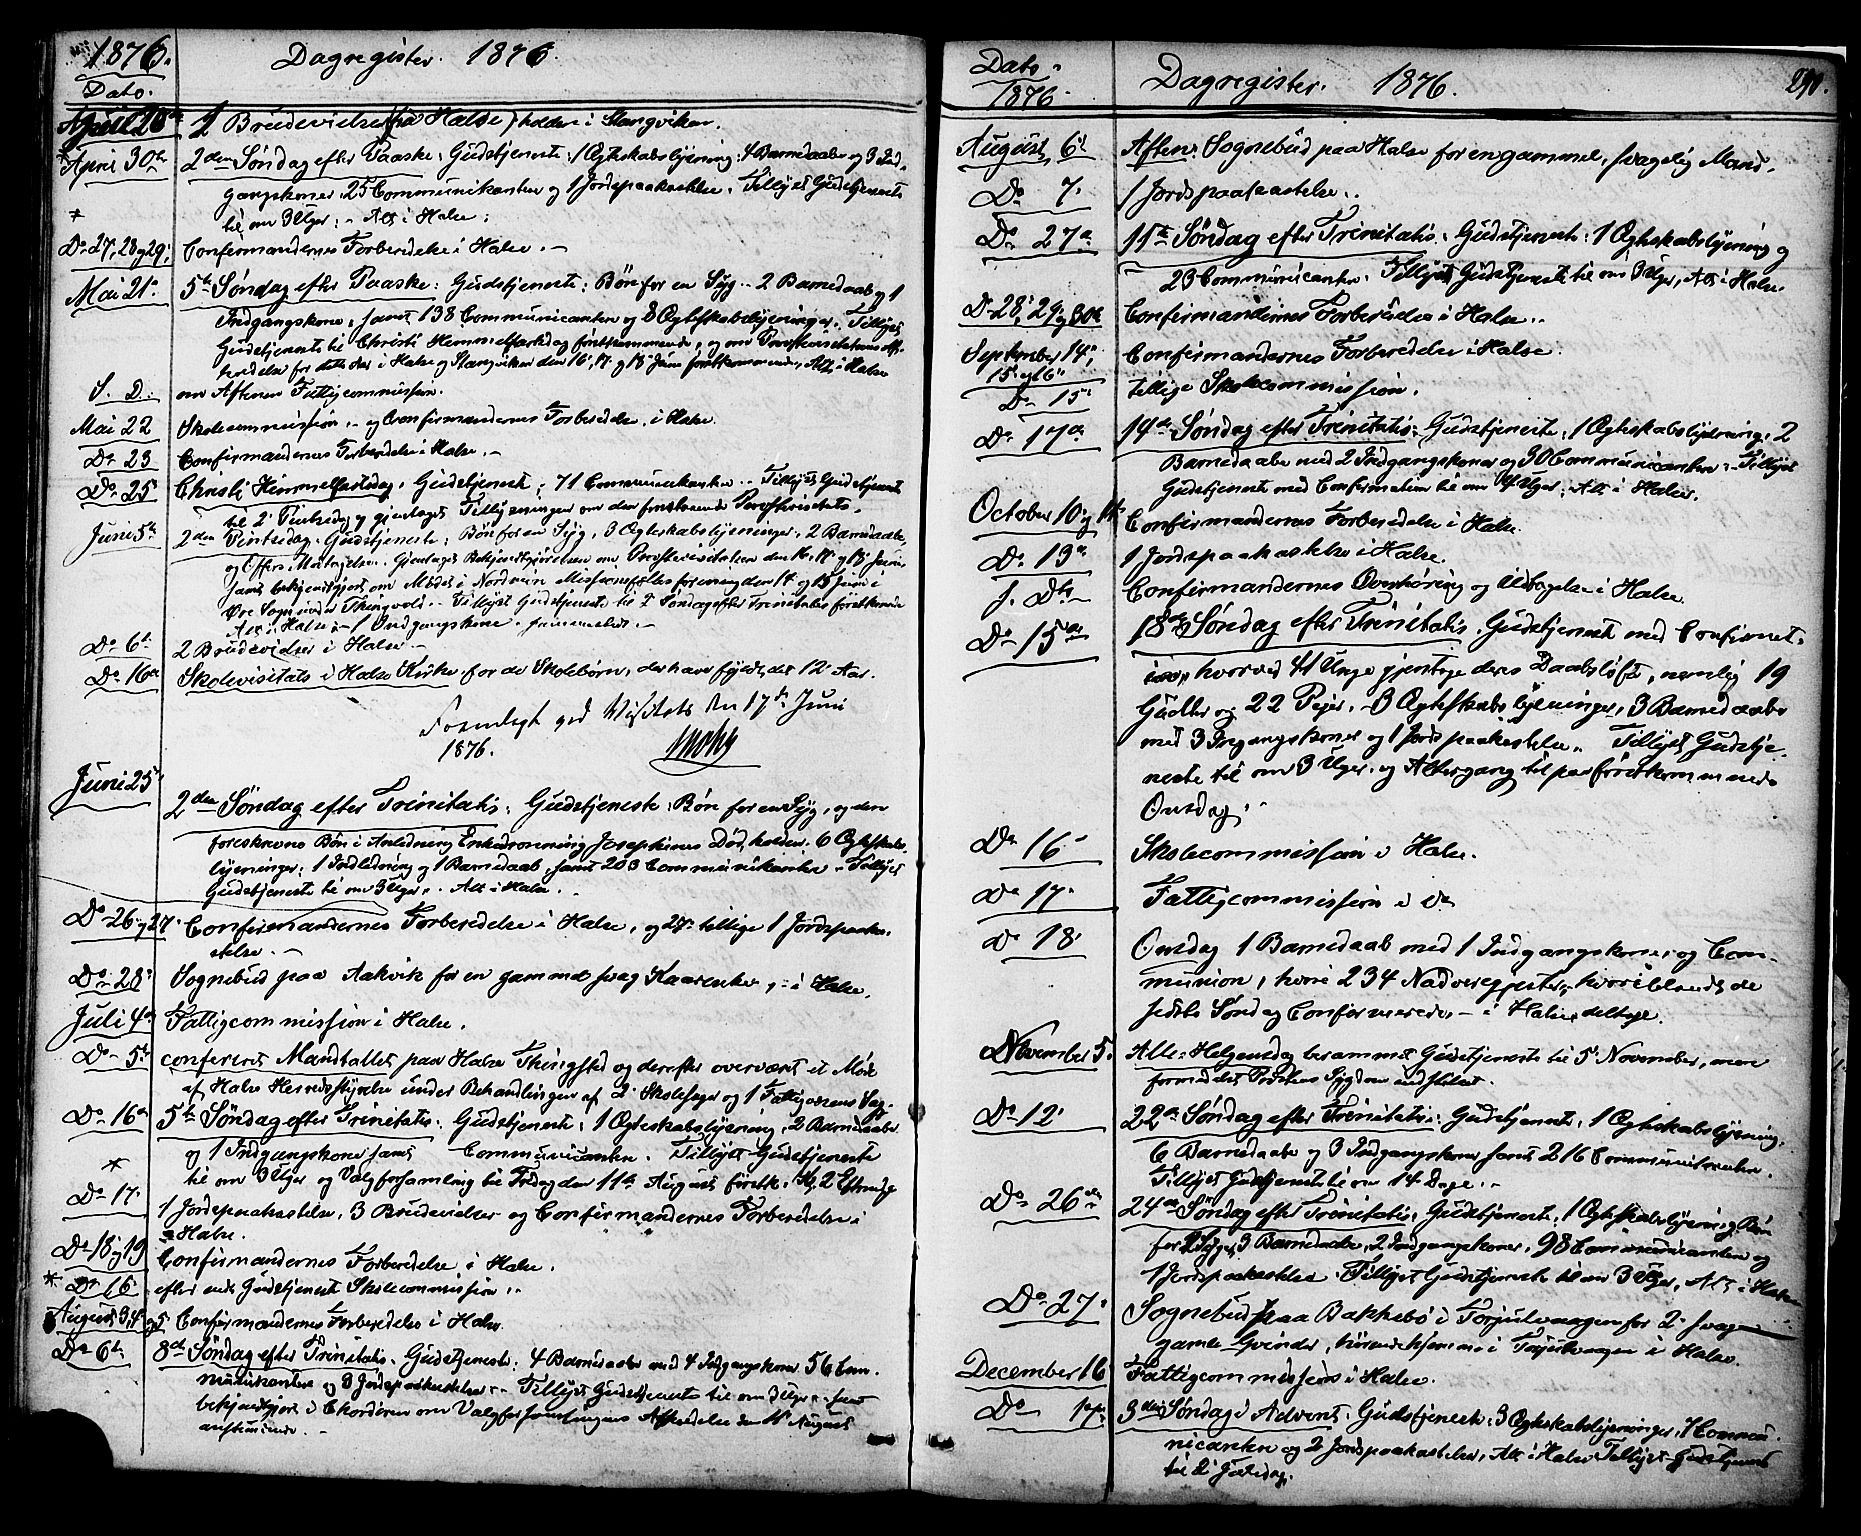 1876.
Dagregister. 1876.
Dato.
April 28de 2 Brudevielser fra Halse, holdes i Stangviken.
*April 30te 2den Søndag efter Paaske: Gudstjeneste: 1 Egteskabslysning: 4 Barnedaabe og 3 Ind-
gangskoner 25 Communikanter og 1 Jordspaakastelse. Tillyst Gudstjeneste
til om 3 Uger. - Alt i Halse.
*
Do 27, 28 og 29. Confirmandernes Forberedelse i Halse. -
Mai 21. 5te Søndag efter Paaske: Gudstjeneste: Bøn for en Syg. 2 Barnedaab og 1
Indgangskone, samt 138 Communicanter og 8 Egteskabslysninger. Tillyst
Gudstjeneste til Christi Himmelfartsdag førstkommende, og om Provstevisitatsens Af-
holdelse for dette Aar i Halse og Stangviken den 16, 17 og 18 Juni førstkommende, Alt i Halse
S. D. om Aftenen Fattigcommission.
Mai 22 Skolecommission, og Confirmandernes Forberedelse, i Halse.
Do 23 Confirmandernes Forberedelse i Halse. -
Do 25 Christi Himmelfartsdag. Gudstjeneste; 71 Communikanter. Tillyst Gudstjeneste
til 2. Pintsedag, og gjentaget Tillysninger om den forestaaende Provstevisitats.
Juni 5te 2den Pintsedag. Gudstjeneste: Bøn for en Syg, 3 Egteskabslysninger, 2 Barnedaabe,
og Offers Modtagelse. Gjentaget Bekjendtgjørelsen om Provstevisitatsen den 16. 17 og 18 Juni,
samt bekjendtgjort om Mødet i Nordmøre Missionsfællesforening den 14 og 15 Juni i
Øre Sogn under Thingvold. Tillyst Gudstjeneste til 2 Søndag efter Trinitatis førstkommende
Alt i Halse. - 1 Indgangskone. sammesteds. -
Do 6te 2 Brudevielser i Halse -
Do 16de Skolevisitats i Halse Kirke for de Skolebørn, der have fyldt det 12 Aar.
Foranlegt ved Visitats den 17de Juni
1876.
Juni 25 2den Søndag efter Trinitatis: Gudstjeneste: Bøn for en Syg, og den
foreskrevne Bøn i Anledning Enkedronning Josephines Død, holden. 6 Egteskabs-
lysninger: 1 Indledning og 1 Barnedaab, samt 203 Communikanter. Tillyst
Gudstjeneste til om 3 Uger. Alt i Halse. -
Do 26 og 27. Confirmandernes Forberedelse i Halse, og 27. tillige 1 Jordspaaka-
stelse. -
Do 28 Sognebud paa Aakvik for en gammel svag Kaarenke, i Halse.
Juli 4de Fattigcommission i Halse.
Do 5te confereret Mandtallet paa Halse Thingsted og derefter overværet et Møde
af Halse Herredsstyrelse under Behandlingen af 2 Skolesager og 1 Fattigvæsens Sag.
Do 16de 5te Søndag efter Trinitatis: Gudstjeneste: 1 Egteskabslysning, 2 Barnedaabe
og 1 Indgangskone samt Communicanter. Tillyst Gudstjeneste
* til om 3 Uger og Valgforsamling til Fredag den 11te August førstk. Kl. 2 Eftmdg.
Do 17. 1 Jordspaakastelse, 3 Brudevielser og Confirmandernes Forberedelse i
Halse.
Do 18 og 19 Confirmandernes Forberedelse i Halse.
* Do 16. efter endt Gudstjeneste Skolecommission.
August 3, 4 og 5 Confirmandernes Forberedelse i Halse.
Do 6te 8de Søndag efter Trinitatis. Gudstjeneste: 4 Barnedaabe med 4 Indgangskoner 56 Com-
munikanter og 3 Jordspaakastelser. Tillyst Gudstjeneste til om 3 Uger. samt
bekjendtgjort i Chordøren om Valgforsamlingens Afholdelse den 11te August
anstundende. -
Dato.
1876.
Dagregister. 1876.
290.
August 6te Aften. Sognebud paa Halse for en gammel, svagelig Mand.
Do 7. 1 Jordspaakastelse.
Do 27de 11te Søndag efter Trinitatis. Gudstjeneste: 1 Egteskabslysning og
23 Communicanter. Tillyst Gudstjeneste til om 3 Uger, Alt i Halse.
Do 28, 29 og 30te Confirmandernes Forberedelse i Halse.
September 14, Confirmandernes Forberedelse i Halse.
15 og 16.
Do 15. tillige Skolecommission.
Do 17de 14de Søndag efter Trinitatis: Gudstjeneste; 1 Egteskabslysning, 2
Barnedaabe med 2 Indgangskoner og 30 Communicanter. Tillyst
Gudstjeneste med Confirmation til om 4 Uger. Alt i Halse.
October 10 og 11te Confirmandernes Forberedelse i Halse.
Do 13de 1 Jordspaakastelse i Halse.
S. Ds Confirmandernes Overhøring og Udtagelse i Halse.
Do 15de 18de Søndag efter Trinitatis. Gudstjeneste med Confirmat-
ion, hvorved 41 Unge gjentoge deres Daabsløfte, nemlig 19
Gutter og 22 Piger. 3 Egteskabslysninger, 3 Barnedaabe
med 3 Ingangskoner og 1 Jordspaakastelse. Tillyst Gudstje-
neste til om 3 Uger. og Altergang til paa førstkommende
Onsdag.
Do 16. Skolecommission i Halse.
Do 17. Fattigcommission i Do
Do 18. Onsdag 1 Barnedaab med 1 Indgangskone, og Com-
munion, hvori 234 Nadvergjester, hvoriblandt de
sidste Søndag Confirmerede, - i Halse, deltoge.
November 5. Alle-Helgensdag berammet Gudstjeneste til 5. November, men
formedelst Prestens Sygdom indstillet.
Do 12. 22de Søndag efter Trinitatis: Gudstjeneste, 1 Egteskabslysning,
6 Barnedaabe og 3 Indgangskoner samt 216 Communikanter.
Tillyst Gudstjeneste til om 14 Dage. -
Do 26de 24de Søndag efter Trinitatis. Gudstjeneste; 1 Egteskabslysning, Bøn
for 2 Syge, 3 Barnedaabe, 2 Indgangskoner, 98 Communicanter og
1 Jordspaakastelse. Tillyst Gudstjeneste til om 3 Uger, Alt i Halse
Do 27. Sognebud paa Bakkebø i Torjulvaagen for 2 svage
gamle Qvinder, hørende hjemme i Torjulvaagen i Halse.
December 16 Fattigcommission i Halse.
Do 17. 3die Søndag i Advent. Gudstjeneste: 3 Egteskabslysninger, 1 Commu-
nicanter og 2 Jordspaakastelser, Alt i Halse Tillyst Gudstjeneste
til 2. Juledag.